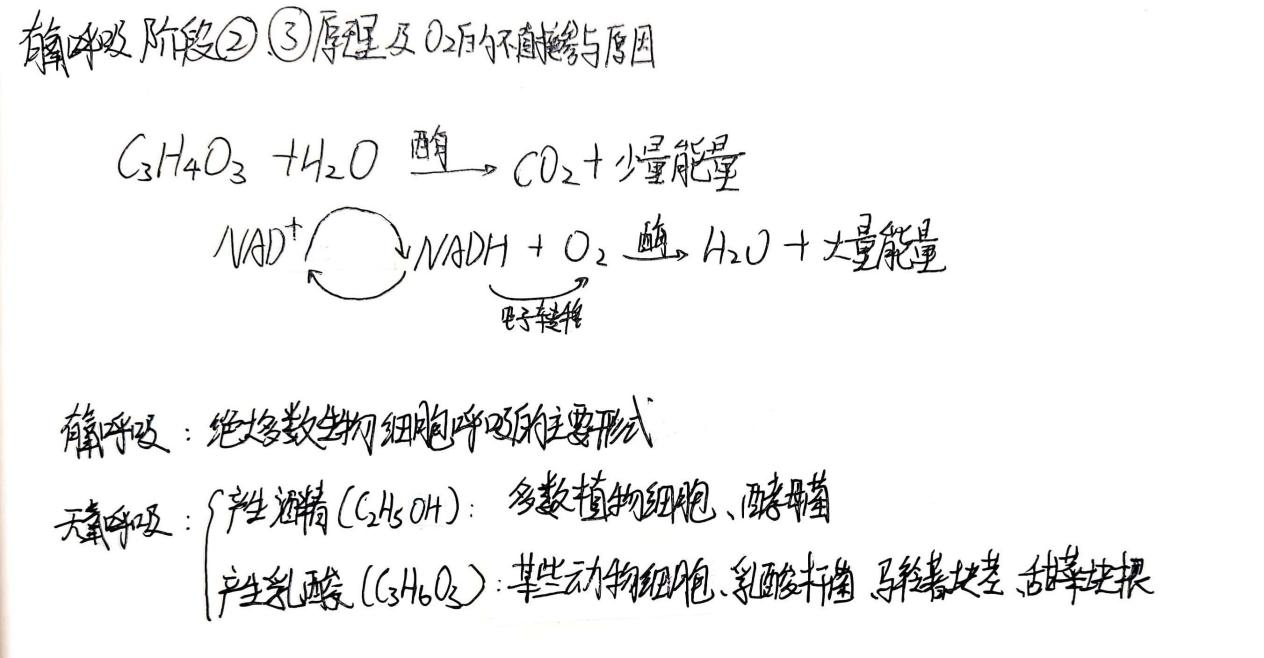 有氧呼吸 阶段②、③原理及O₂的不直接参与原因
C₃H₄O₃ + H₂O 酶→ CO₂ + 少量能量
NAD⁺ NADH + O₂ 酶→ H₂O + 大量能量
电子转移
有氧呼吸：绝大多数生物细胞呼吸的主要形式
无氧呼吸：{产生酒精(C₂H₅OH)：多数植物细胞、酵母菌
产生乳酸(C₃H₆O₃)：某些动物细胞、乳酸杆菌、马铃薯块茎、甜菜块根